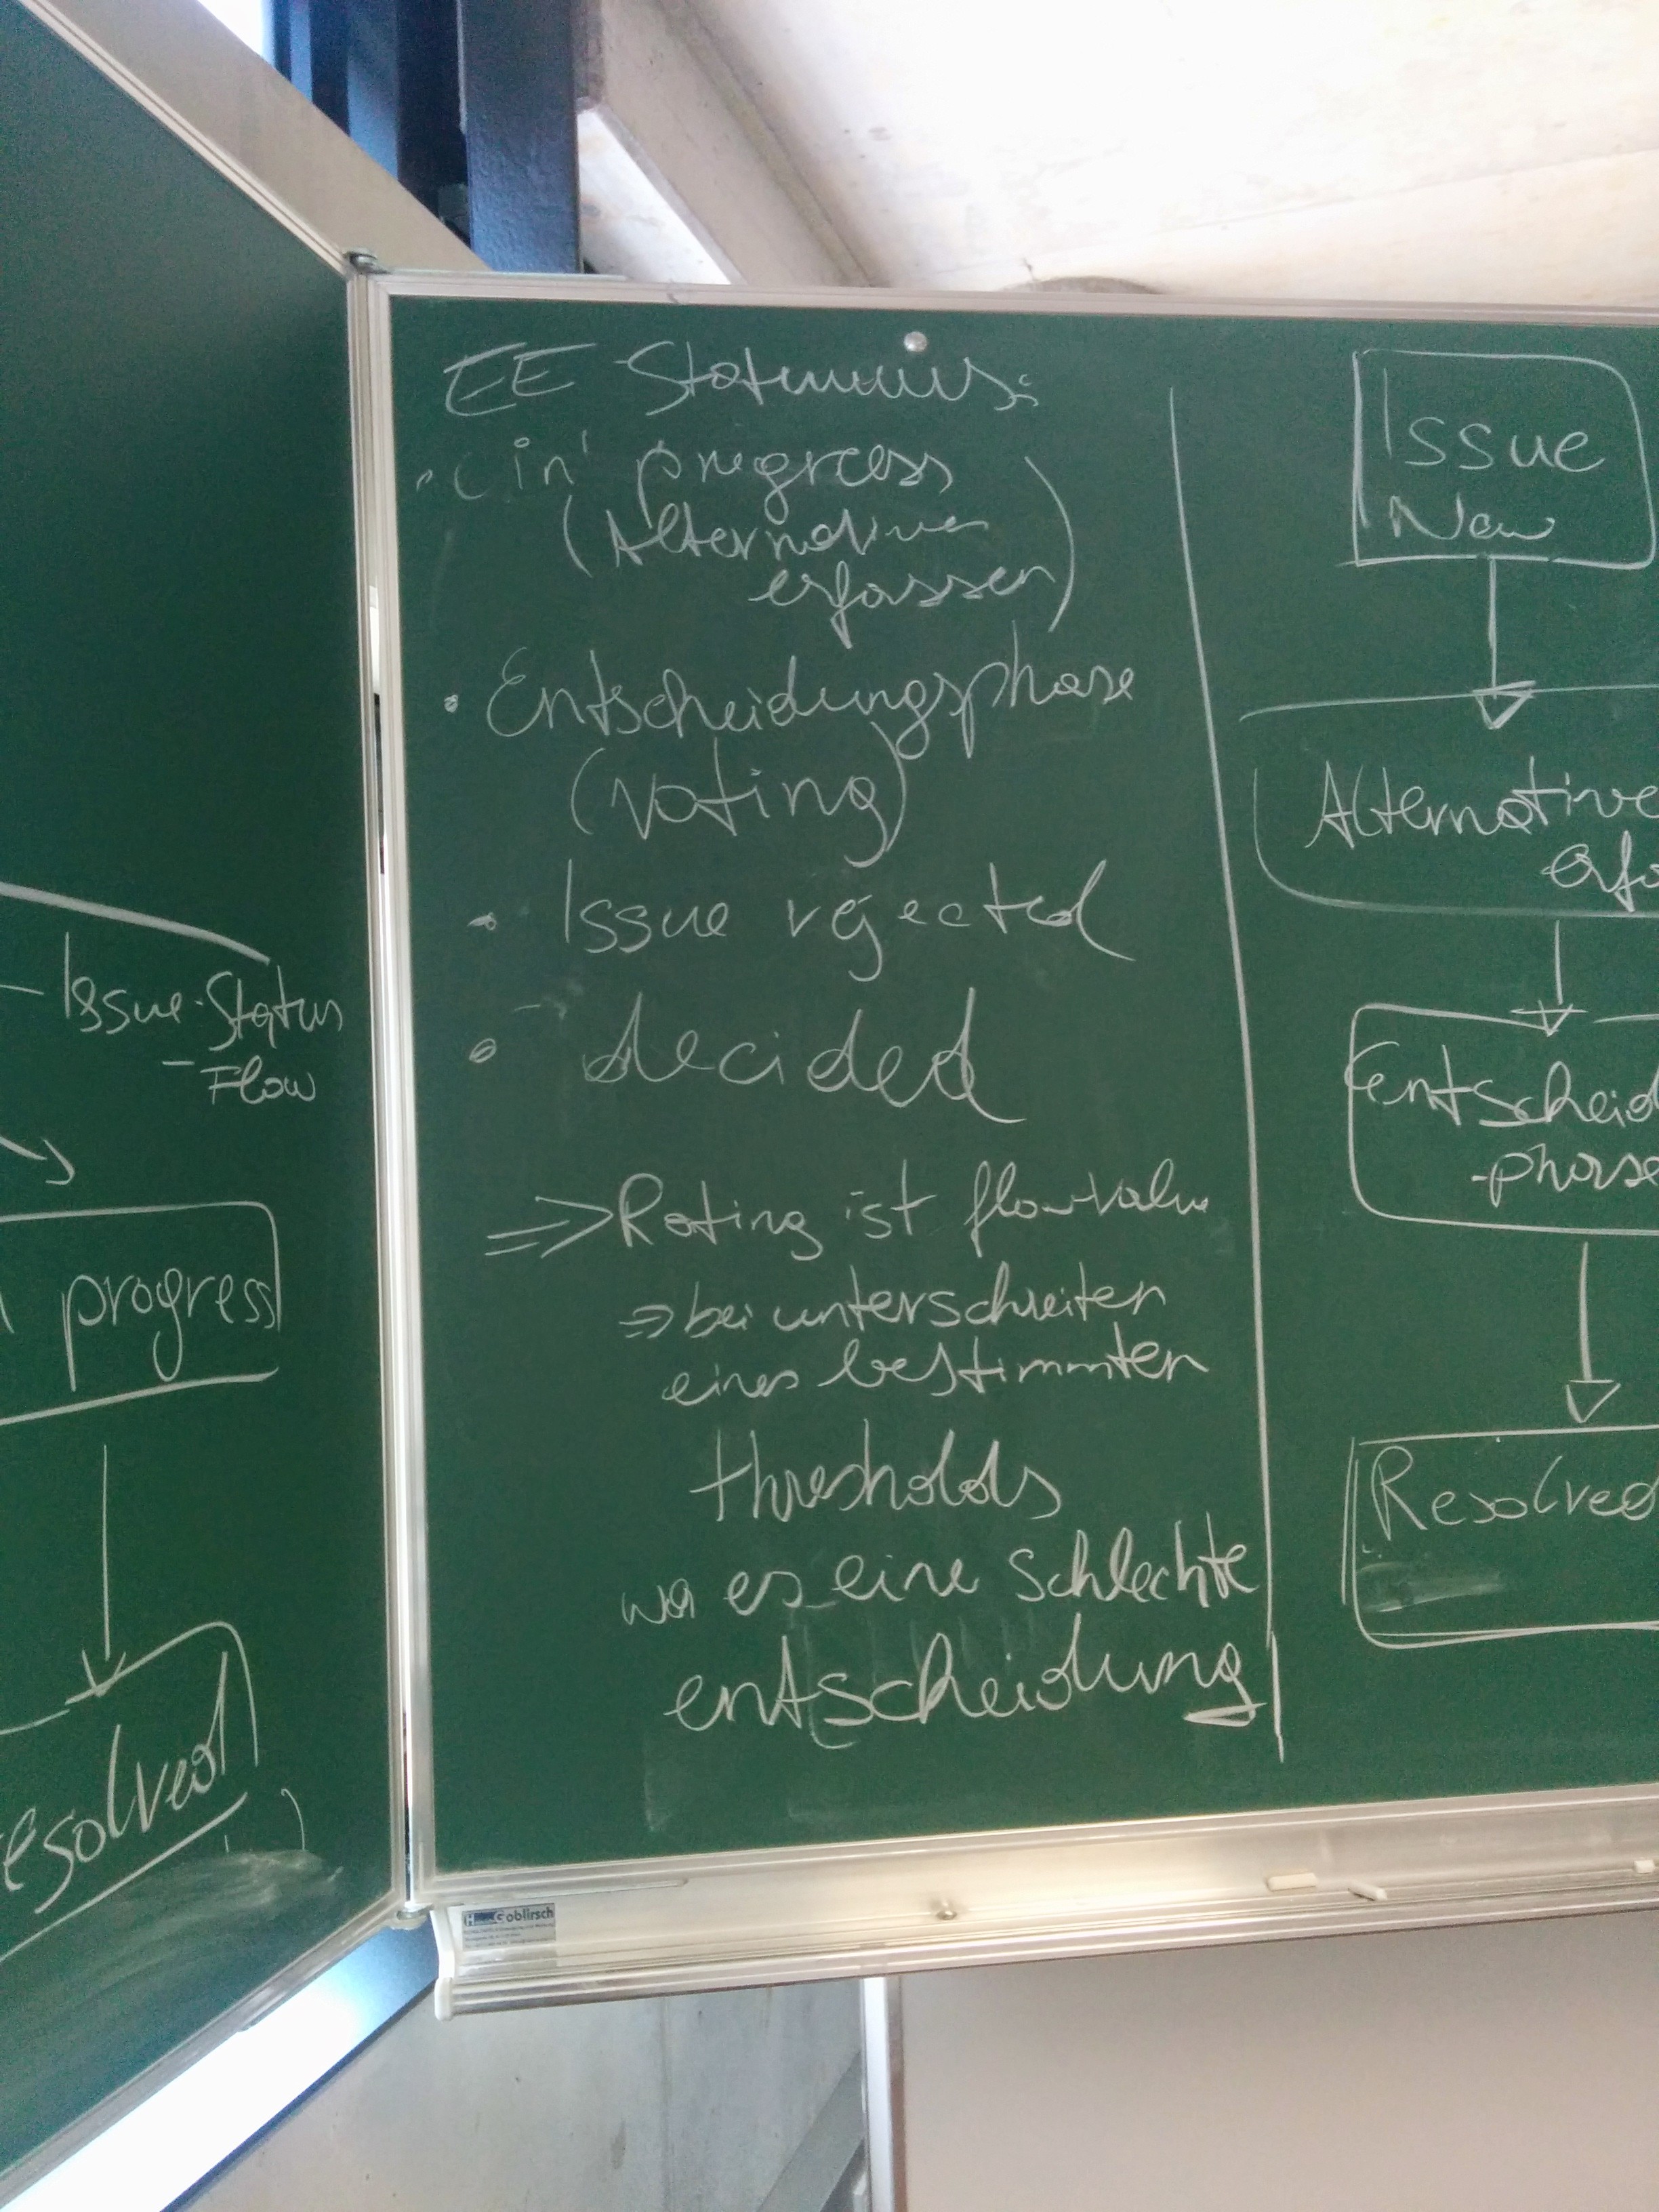 Issue-Status
- Flow
progress
esolved
EE
in progress
(Alternativen
erfassen)
• Entscheidungsphase
(voting)
• Issue rejected
• decided
⇒ Rating ist
⇒ bei unterschreiten
eines bestimmten
thresholds
war es eine schlechte
entscheidung
Issue
New
Alternative
erfa
Entscheid
-phase
Resolved
oblirsch